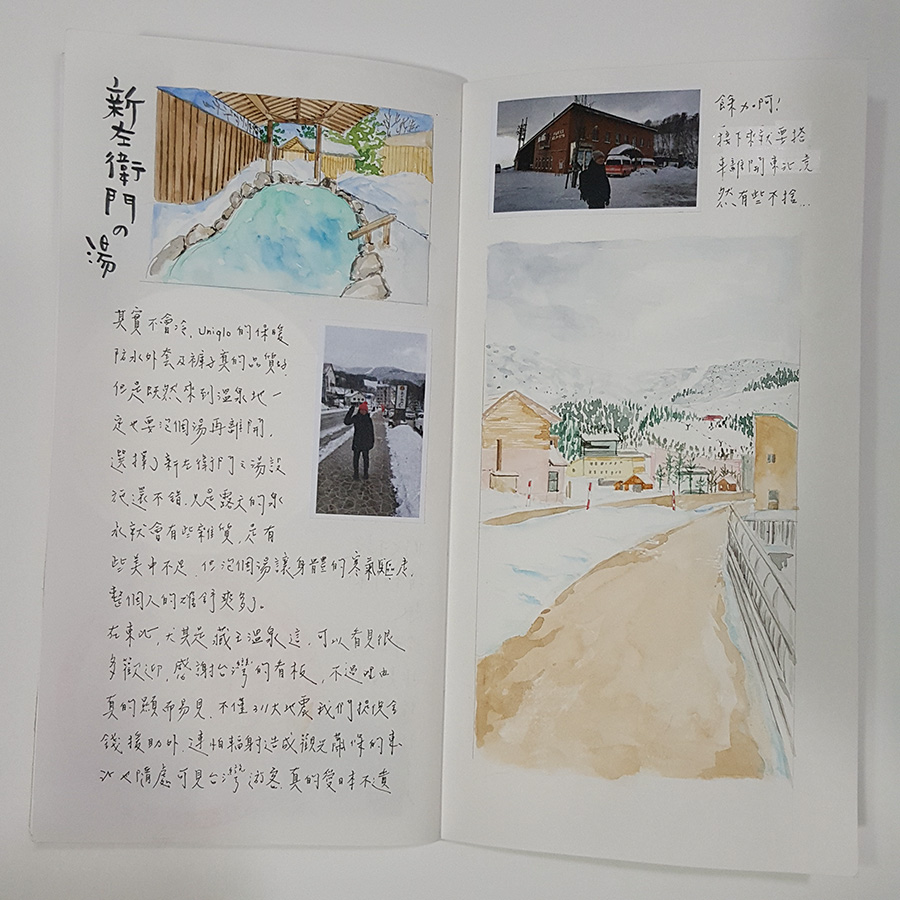 新左衛門の湯
其實不會冷, Uniqlo的保暖
防水外套及褲子真的品質好
但是既然來到溫泉地一
定也要泡個湯再離開.
選擇了新左衛門之湯設
施還不錯.只是露天的泉
水就會有些雜質,是有
些美中不足,但泡個湯讓身體的寒氣驅走.
整個人的確舒爽多了。
在東北,尤其是藏王溫泉這,可以看見很
多歡迎,感謝台灣的看板,不過理由
真的顯而易見,不僅311大地震我們提供金
錢援助外,連怕輻射造成觀光蕭條的東
北也隨處可見台灣游客.真的愛日本不遺
餘力阿!
接下來就要搭
車離開東北竟
然有些不捨...